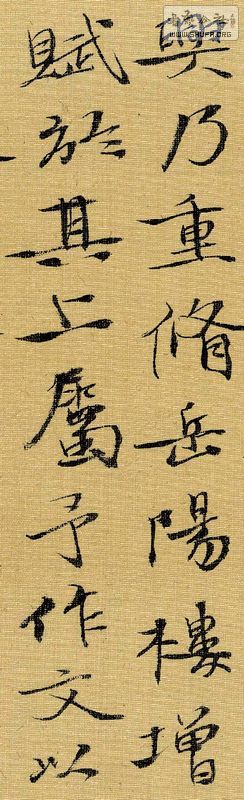 興乃重脩岳陽樓增
賦於其上屬予作文以
WWW.SHUFA.ORG